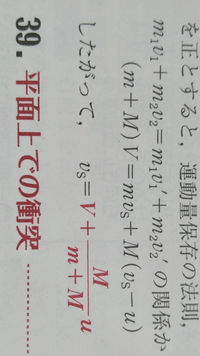 を正とすると，運動量保存の法則，
m₁v₁＋m₂v₂＝m₁v₁′＋m₂v₂′ の関係か
(m＋M)V＝mvₛ＋M(vₛ−u)
したがって，　vₛ＝V＋M/(m＋M) u
39. 平面上での衝突 ……………